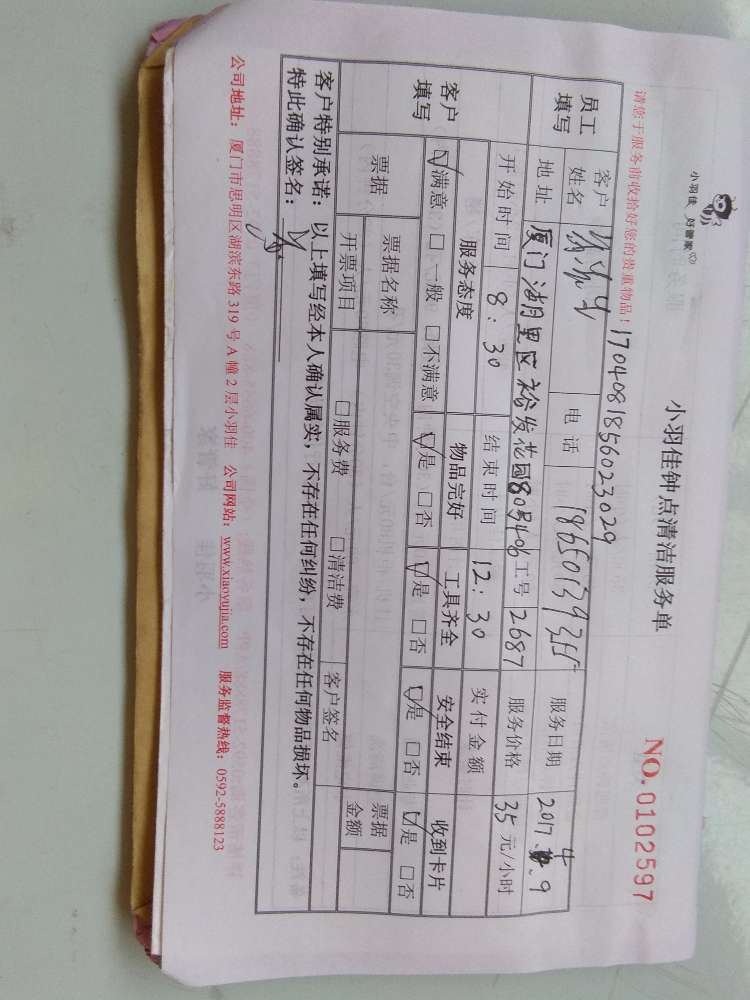 小羽佳 好管家
小羽佳钟点清洁服务单
NO.0102597
请您于服务前收拾好您的贵重物品！
1704081856023029
员工填写
客户姓名
电话
服务日期 2017.4.9
地址 厦门湖里区裕发花园 工号 2687 服务价格 35元/小时
开始时间 8:30 结束时间 12:30 实付金额
客户填写
服务态度 物品完好 工具齐全 安全结束 收到卡片
☑满意 □一般 □不满意 ☑是 □否 ☑是 □否 ☑是 □否 ☑是 □否
票据 票据名称 票据金额
开票项目 □服务费 □清洁费 客户签名
客户特别承诺：以上填写经本人确认属实，不存在任何纠纷，不存在任何物品损坏。
特此确认签名：
公司地址：厦门市思明区湖滨东路 319 号 A 幢 2 层小羽佳 公司网站：www.xiaoyujia.com 服务监督热线：0592-5888123